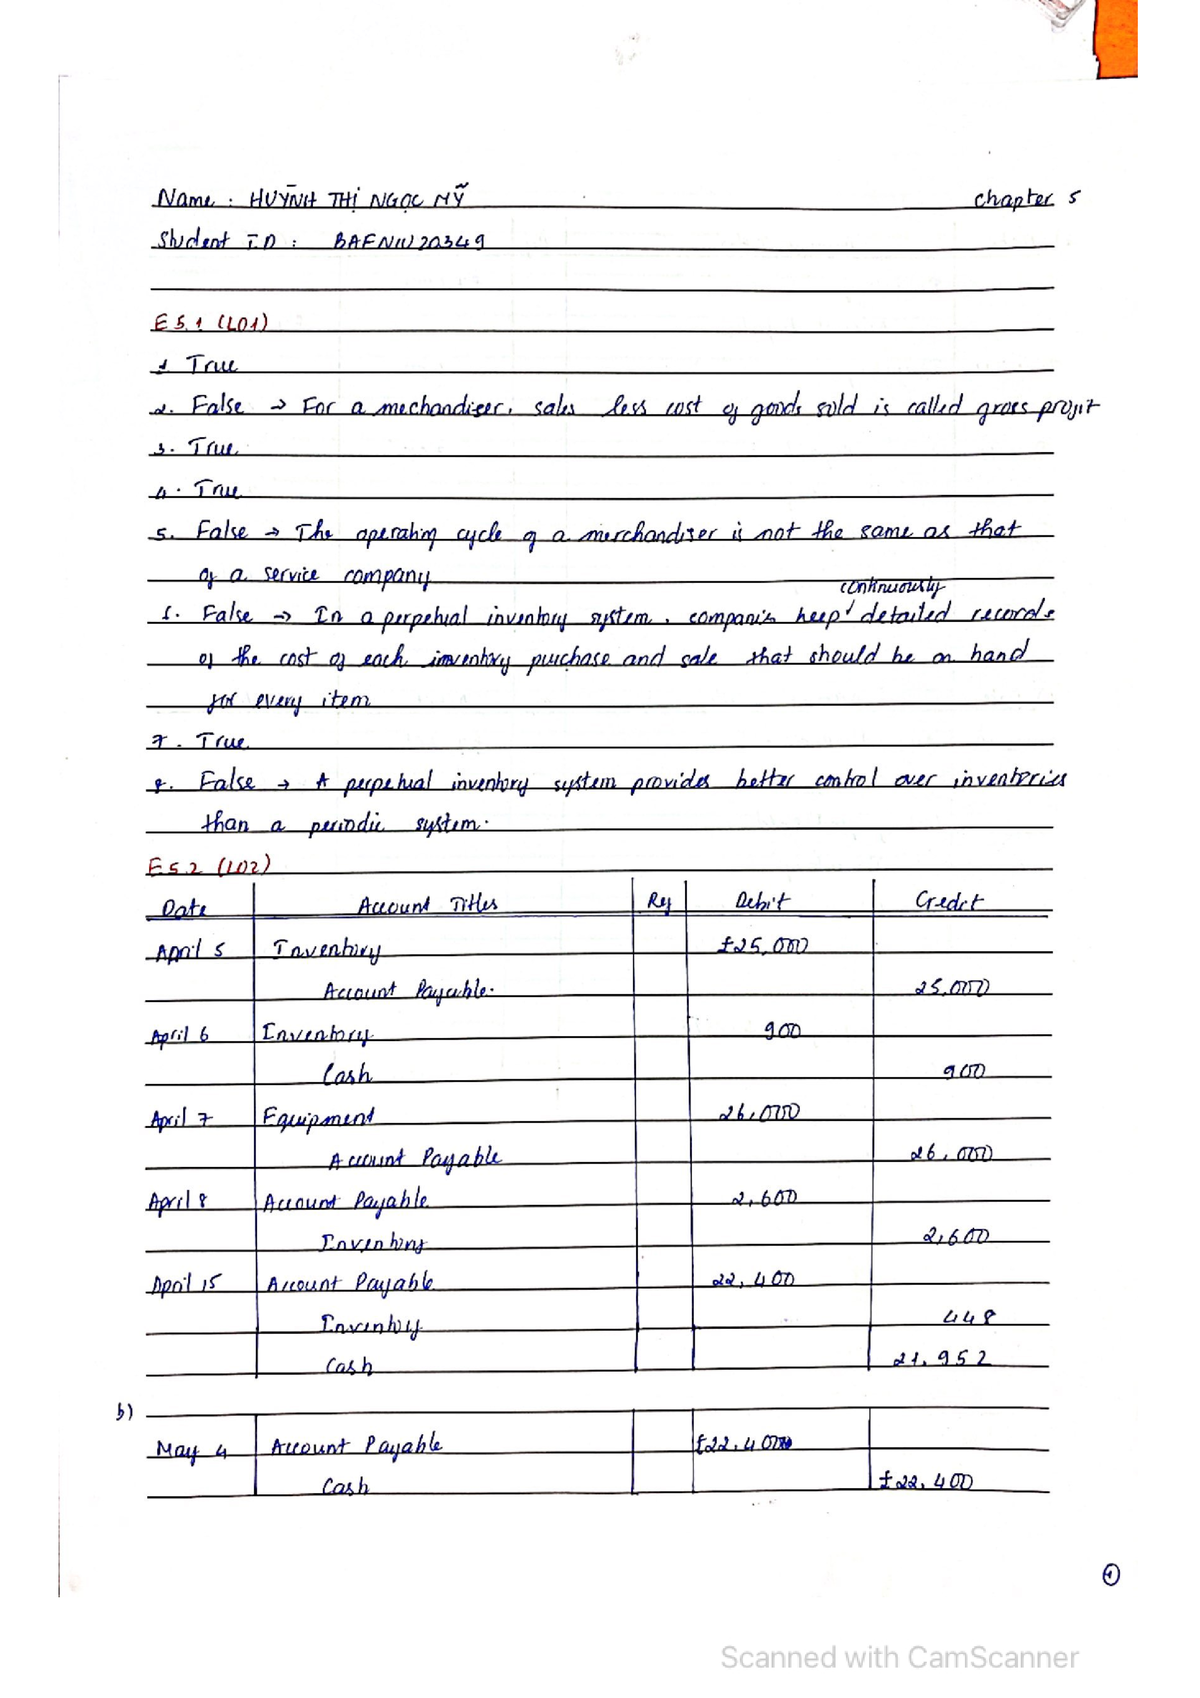 Name : HUỲNH THỊ NGỌC MỸ Chapter 5
Student ID :
E5.1 (LO1)
1 True
2. False → For a mechandiser, sales less cost of goods sold is called gross profit
3. True
4. True
5. False → The operating cycle of a merchandiser is not the same as that
of a service company
continuously
6. False → In a perpetual inventory system, companies keep detailed records
of the cost of each inventory purchase and sale that should be on hand
for every item
7. True
8. False → A perpetual inventory system provides better control over inventories
than a periodic system.
E5.2 (LO2)
Date Account Titles Ref Debit Credit
April 5 Inventory £25,000
Account Payable. 25,000
April 6 Inventory 900
Cash 900
April 7 Equipment 26,000
Account Payable 26,000
April 8 Account Payable 2,600
Inventory 2,600
April 15 Account Payable 22,400
Inventory 448
Cash 21,952
b)
May 4 Account Payable £22,400
Cash £22,400
1
Scanned with CamScanner